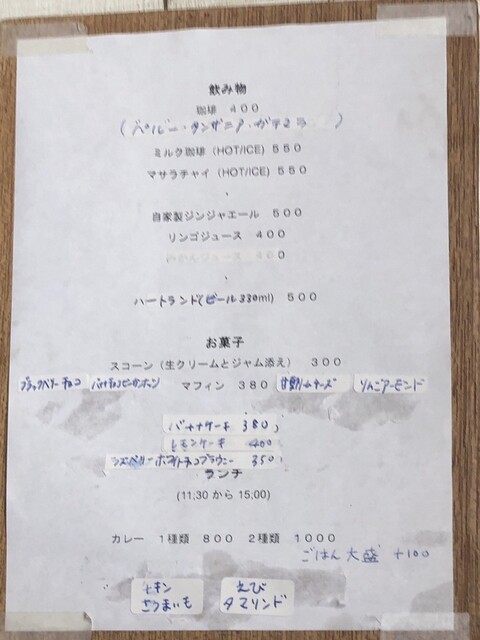 飲み物
珈琲 400
(ペルー・タンザニア・ガテマラ)
ミルク珈琲 (HOT/ICE) 550
マサラチャイ (HOT/ICE) 550
・
自家製ジンジャエール 500
リンゴジュース 400
みかんジュース 400
・
ハートランド(ビール330ml) 500
お菓子
スコーン (生クリームとジャム添え) 300
ブラックベリーチョコ マフィン 380 りんごアーモンド
バナナケーキ 380
レモンケーキ 400
ラズベリーホワイトチョコブラウニー 350
ランチ
(11:30 から 15:00)
カレー 1種類 800 2種類 1000
ごはん 大盛 +100
チキン えび
さつまいも タマリンド